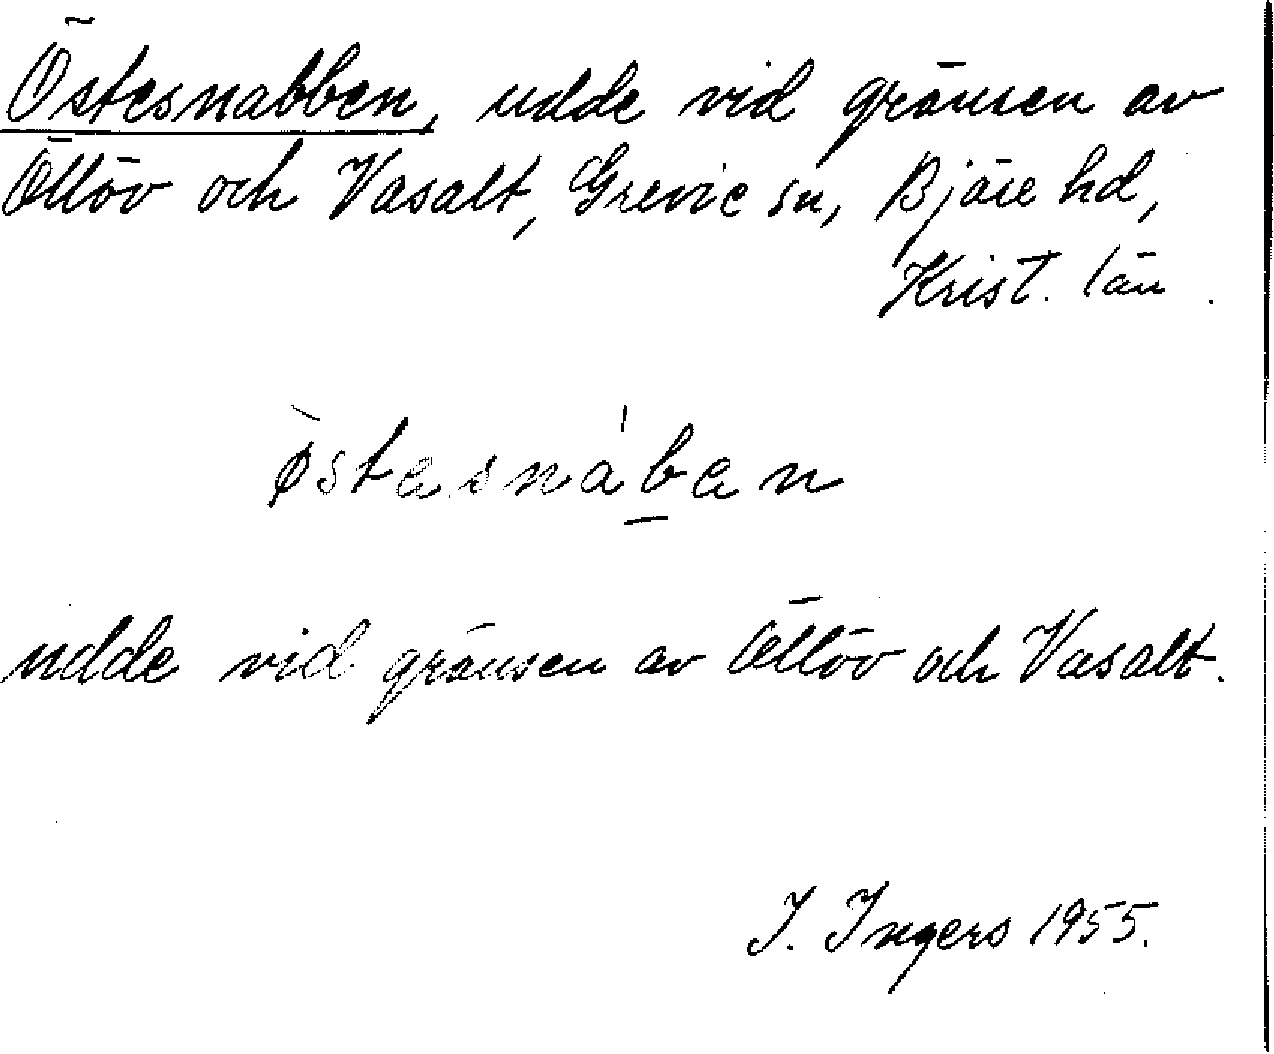 Östesnabben, udde vid gränsen av
Öllöv och Vasalt, Grevie sn, Bjäre hd,
Krist. län.
ø̀stasná̱ban
udde vid gränsen av Öllöv och Vasalt.
I. Ingers 1955.